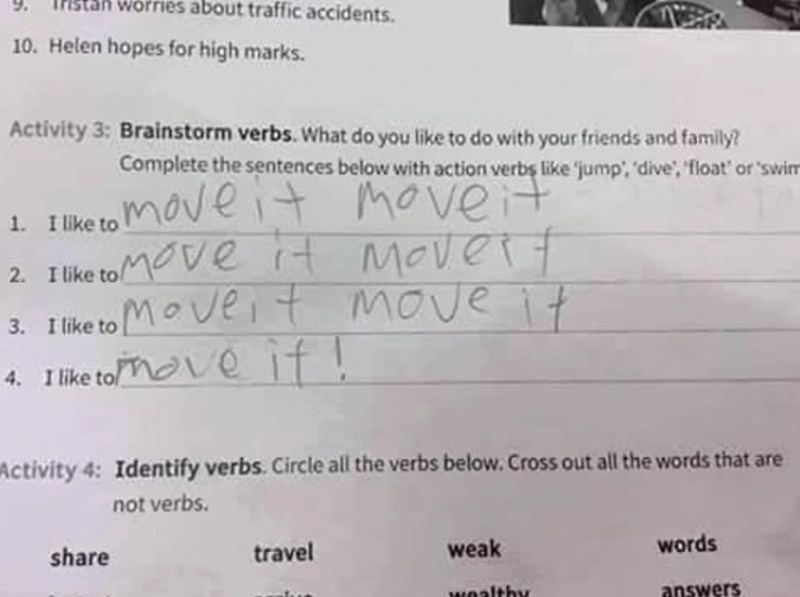 9. Tristan worries about traffic accidents.
10. Helen hopes for high marks.
Activity 3: Brainstorm verbs. What do you like to do with your friends and family?
Complete the sentences below with action verbs like 'jump', 'dive', 'float' or 'swim
1. I like to move it move it
2. I like to move it move it
3. I like to move it move it
4. I like to move it!
Activity 4: Identify verbs. Circle all the verbs below. Cross out all the words that are
not verbs.
share travel weak words
wealthy answers